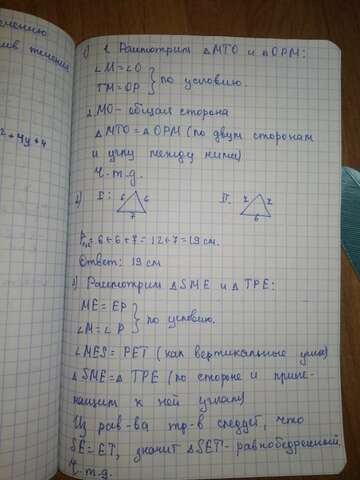 лению
мв течения
2 + 4y + 4
1) 1. Рассмотрим △MTO и △OPM:
∠M = ∠O
TM = OP } по условию.
△MO - общая сторона
△MTO = △OPM (по двум сторонам
и углу между ними)
Ч.т.д.
2) I: 6 6 7 II. 7 7 6
P = 6 + 6 + 7 = 12 + 7 = 19 см.
Ответ: 19 см
3) Рассмотрим △SME и △TPE:
ME = EP
∠M = ∠P } по условию.
∠MES = PET (как вертикальные углы)
△SME = △TPE (по стороне и приле-
жащим к ней углам)
Из рав-ва тр-в следует, что
SE = ET, значит △SET - равнобедренный
Ч.т.д.